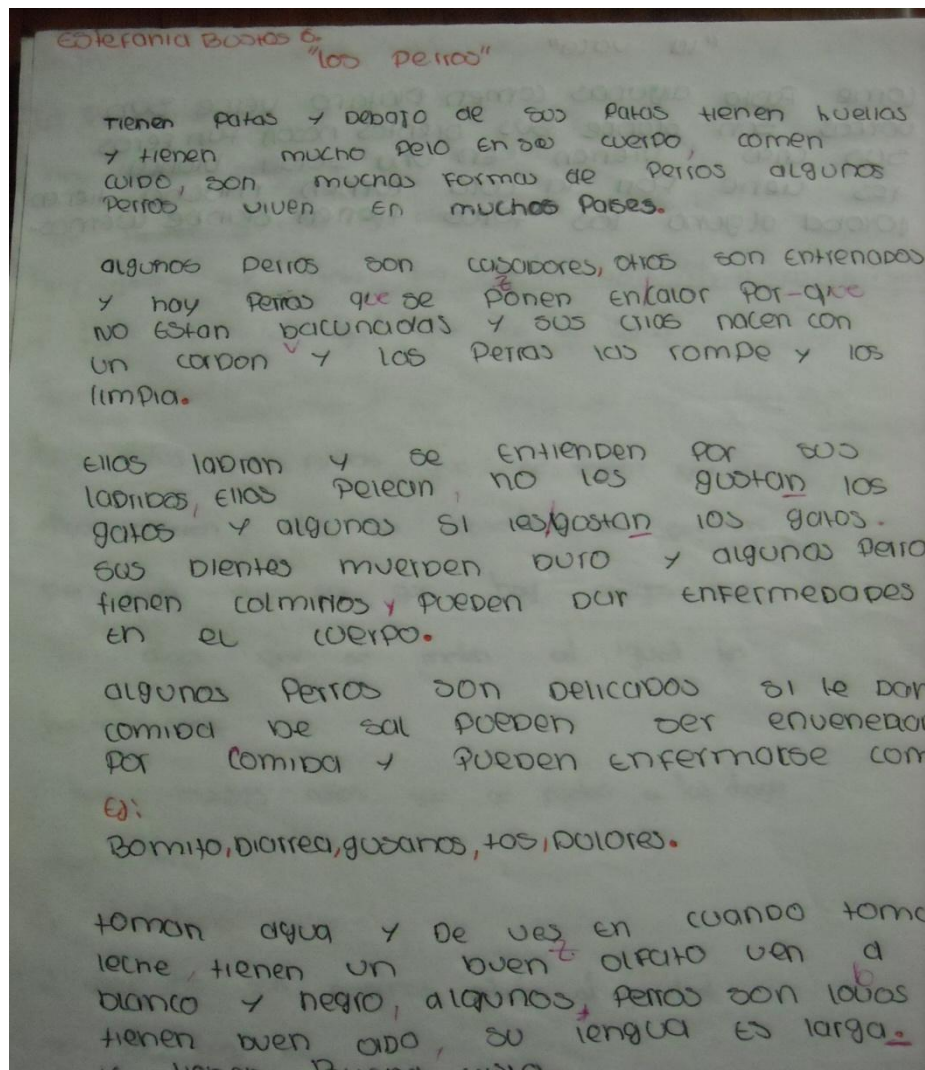 Estefania Bustos G.
"los perros"
Tienen patas y Debajo de sus Patas tienen huellas
y tienen mucho pelo En su cuerpo, comen
cuido, son muchas formas de perros algunos
Perros viven En muchos Paises.
algunos perros son casadores, otros son Entrenados
z
y hay Perras que se ponen En calor Por-que
NO Estan bacunadas y sus crias nacen con
v
un cordon y las Perras las rompe y los
limpia.
Ellos ladran y se Entienden por sus
ladridos, Ellos pelean, no les gustan los
gatos y algunos si les gustan los gatos.
sus Dientes muerden Duro y algunos Perro
tienen colmillos y pueden Dar Enfermedades
En el cuerpo.
algunos Perros son Delicados si le Dan
comida De sal pueden ser enveneda
por comida y pueden Enfermarse com
Ej:
Bomito, Diarrea, gusanos, tos, Dolores.
toman agua y De ves En cuando toma
z
leche, tienen un buen olfato ven a
b
blanco y negro, algunos, Perros son lovos
tienen buen oido, su lengua Es larga.